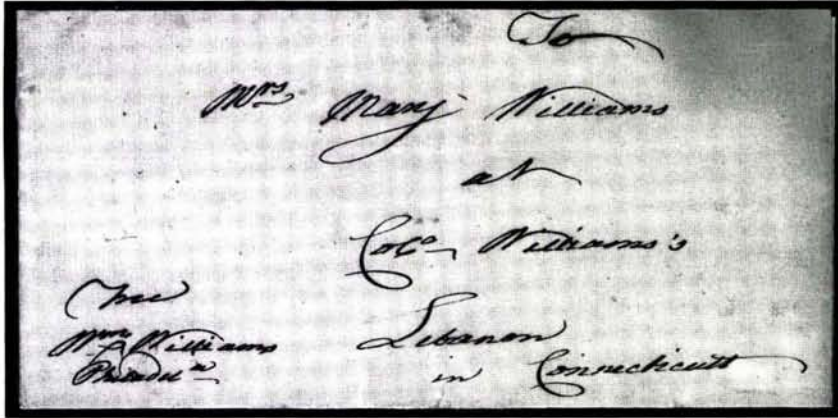 To
Mrs Mary Williams
at
Colo Williams's
Lebanon
in Connecticutt
Wm Williams